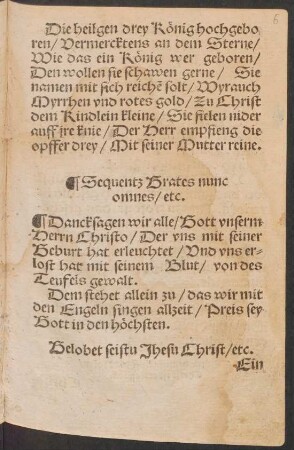 6
Die heilgen drey König hochgebo
ren/ Vermercktens an dem Sterne/
Wie das ein König wer geboren/
Den wollen sie schawen gerne/ Sie
namen mit sich reichē solt/ Wyrauch
Myrrhen vnd rotes gold/ Zu Christ
dem Kindlein kleine/ Sie fielen nider
auff jre knie/ Der Herr empfieng die
opffer drey/ Mit seiner Mutter reine.
¶ Sequentz Grates nunc
omnes/ etc.
¶ Dancksagen wir alle/ Gott vnserm
Herrn Christo/ Der vns mit seiner
Geburt hat erleuchtet/ Vnd vns er-
lost hat mit seinem Blut/ von des
Teufels gewalt.
Dem stehet allein zu/ das wir mit
den Engeln singen allzeit/ Preis sey
Gott in den höchsten.
Gelobet seistu Jhesu Christ/ etc.
Ein